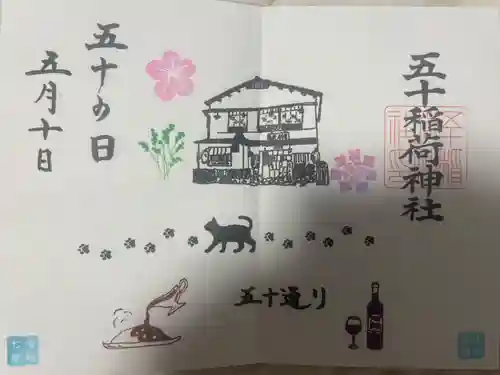 五十稲荷神社
五十の日
五月十日
五十通り